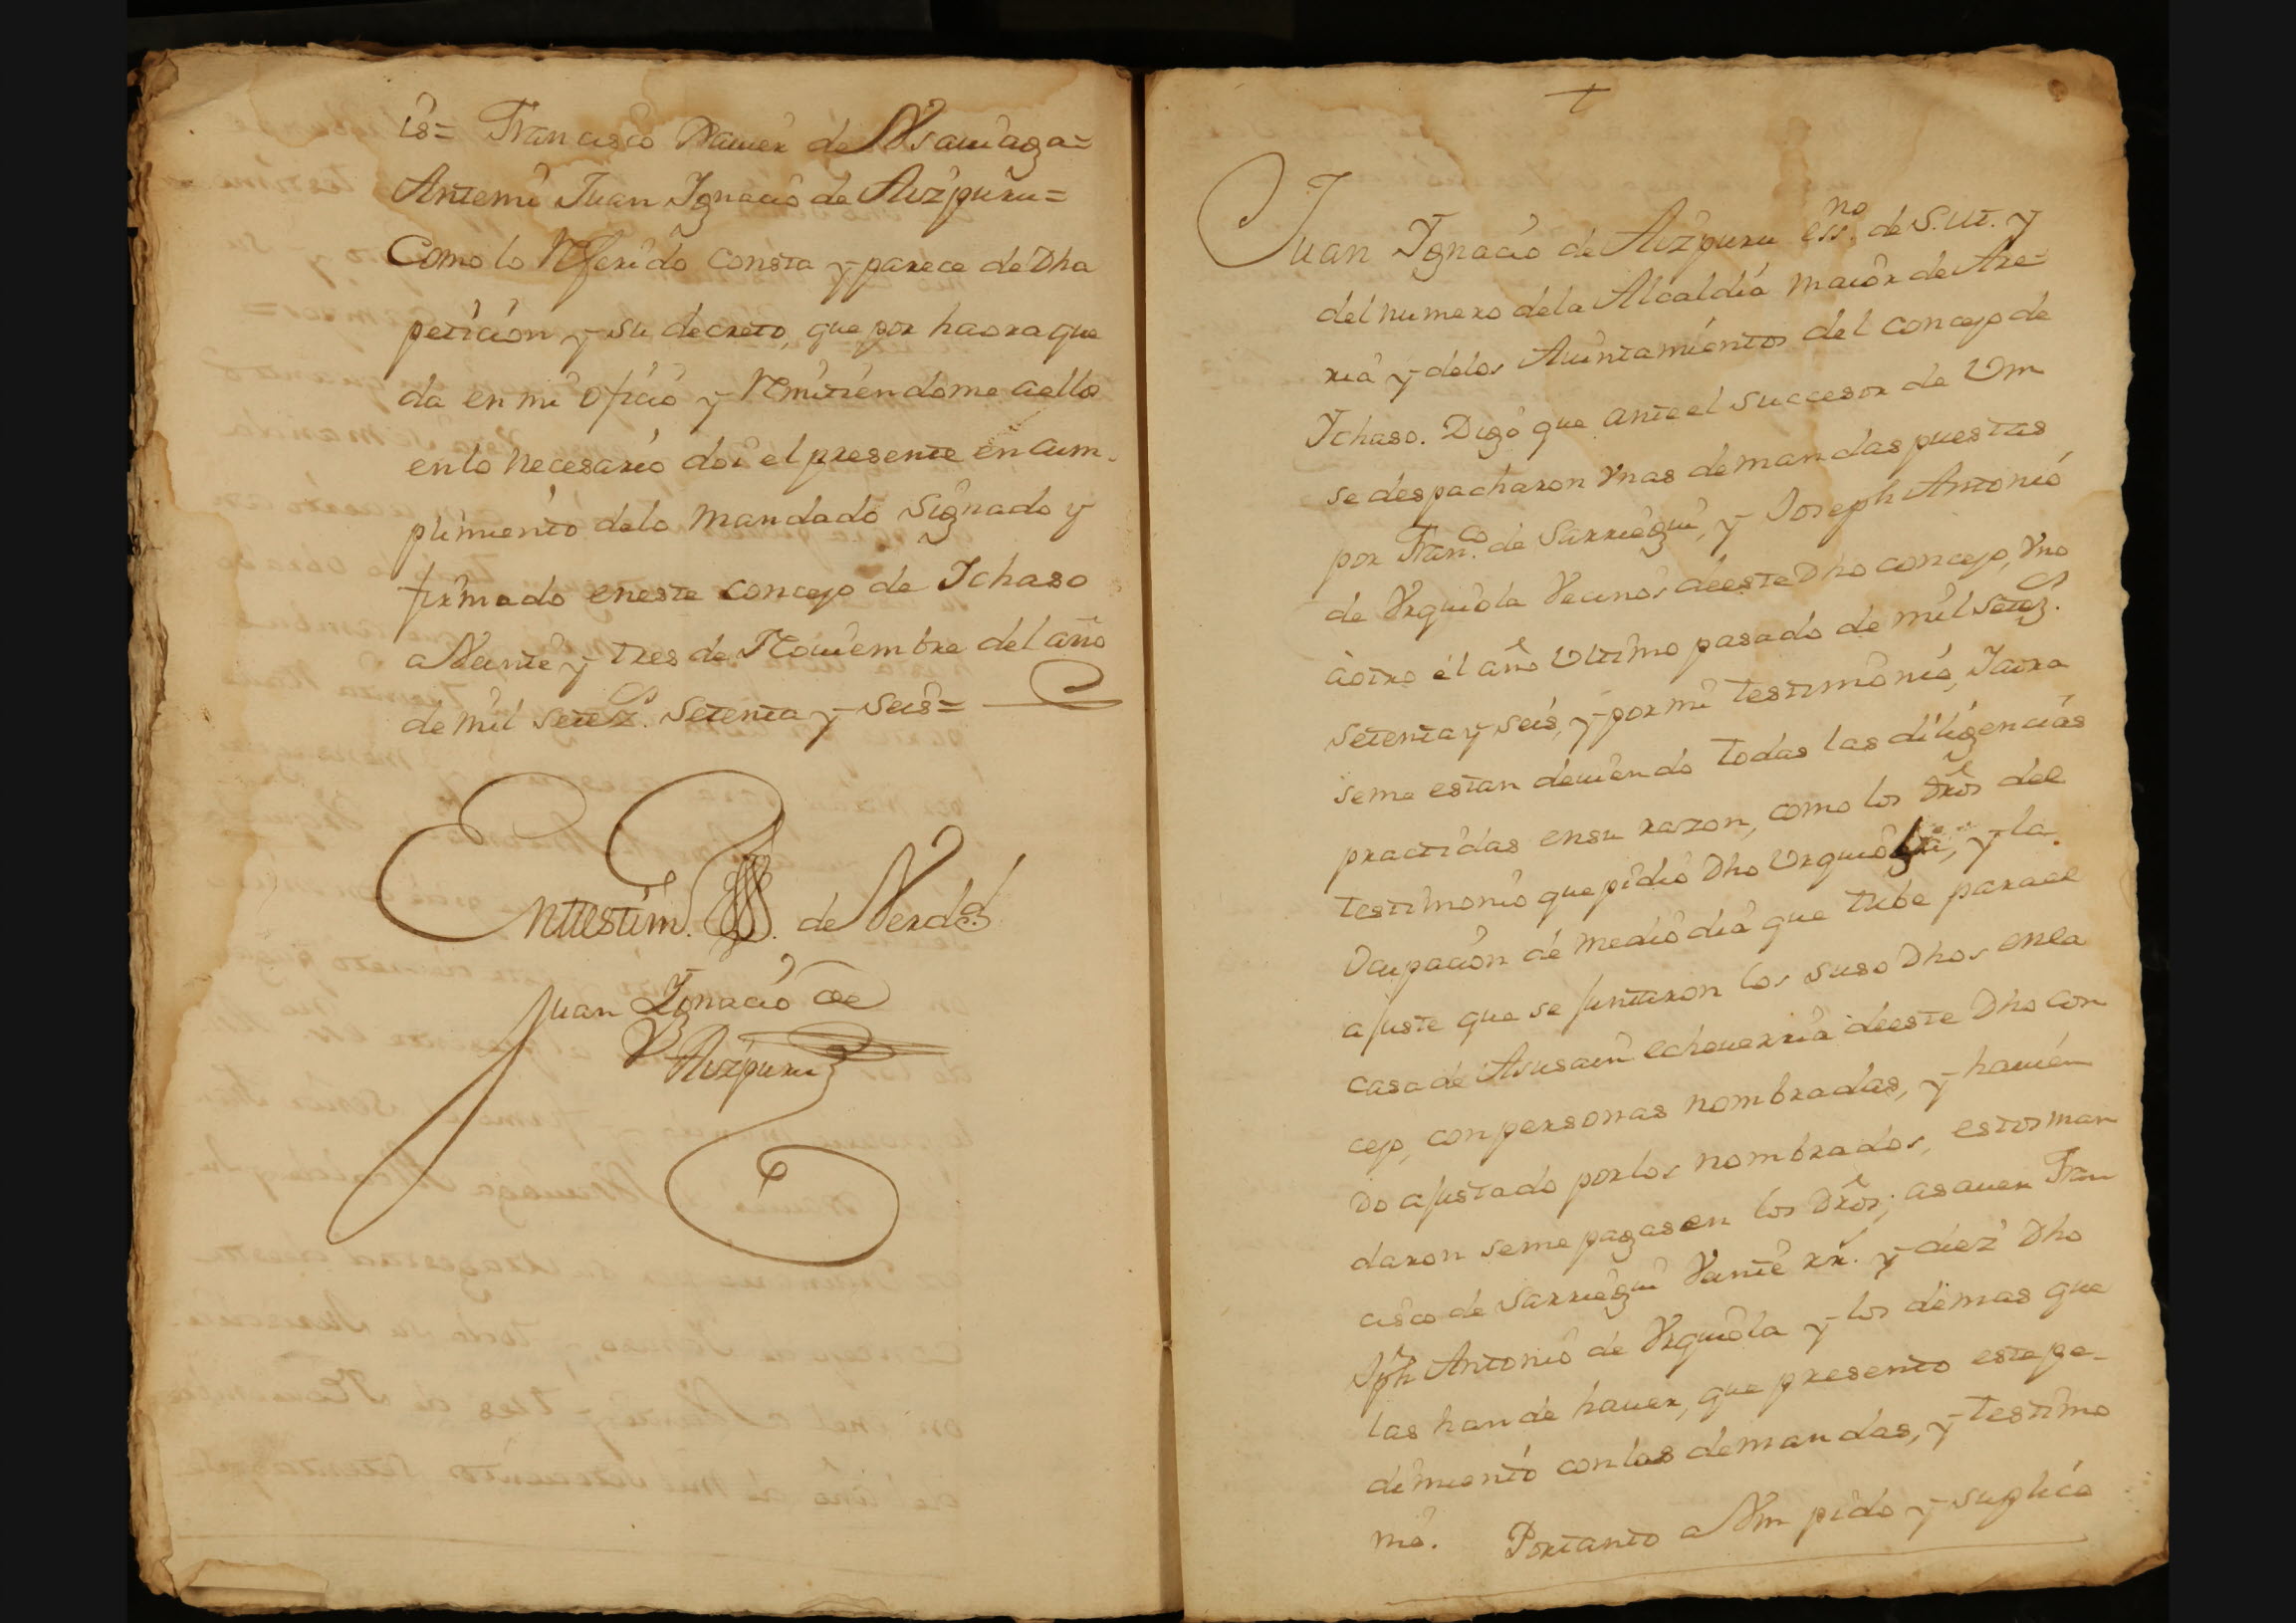 is= Francisco Xavier de Alsauiaga=
Antemi Juan Ignacio de Aizpuru=
Como lo Referido consta y parece de Dha
peticion y su decreto, que por haora que
da en mi oficio y Remitiendome aellos
enlo necesario doi el presente en cum-
plimiento delo mandado signado y
firmado eneste concejo de Ichaso
a Veinte y tres de Nouiembre del año
de mil setez.s setenta y seis=
Entestim.o de Verdad
Juan Ignacio de
Aizpuru
+
Juan Ignacio de Aizpuru ess.no de S.M. y
del numero dela Alcaldia maior de Are-
ria y delos Aiuntamientos del concejo de
Ichaso. Digo que ante el successor de Vm
se despacharon Vnas demandas puestas
por Fran.co de Sarriegui, y Joseph Antonio
de Vrquiola Vecinos deeste Dho concejo, Vno
aotro el año Vltimo pasado de mil setez.s
setenta y seis, y por mi testimonio, Iaora
seme estan deuiendo todas las diligencias
practidas ensu razon, como los Dros del
testimonio que pidio Dho Vrquiola, y la
Ocupacion de medio dia que tube parael
ajuste que se juntaron los suso Dhos enla
casa de Asusain echeuerria deeste Dho con
cejo, con personas nombradas, y hauien
do ajustado por los nombrados, estos man
daron seme pagasen los Dros; asauer Fran
cisco de Sarriegui Veinte rr.s y diez Dho
Jph Antonio de Vrquiola y los demas que
las han de hauer, que presento este pe-
dimiento con las demandas, y testimo
nio. Portanto a Vm pido y suplico